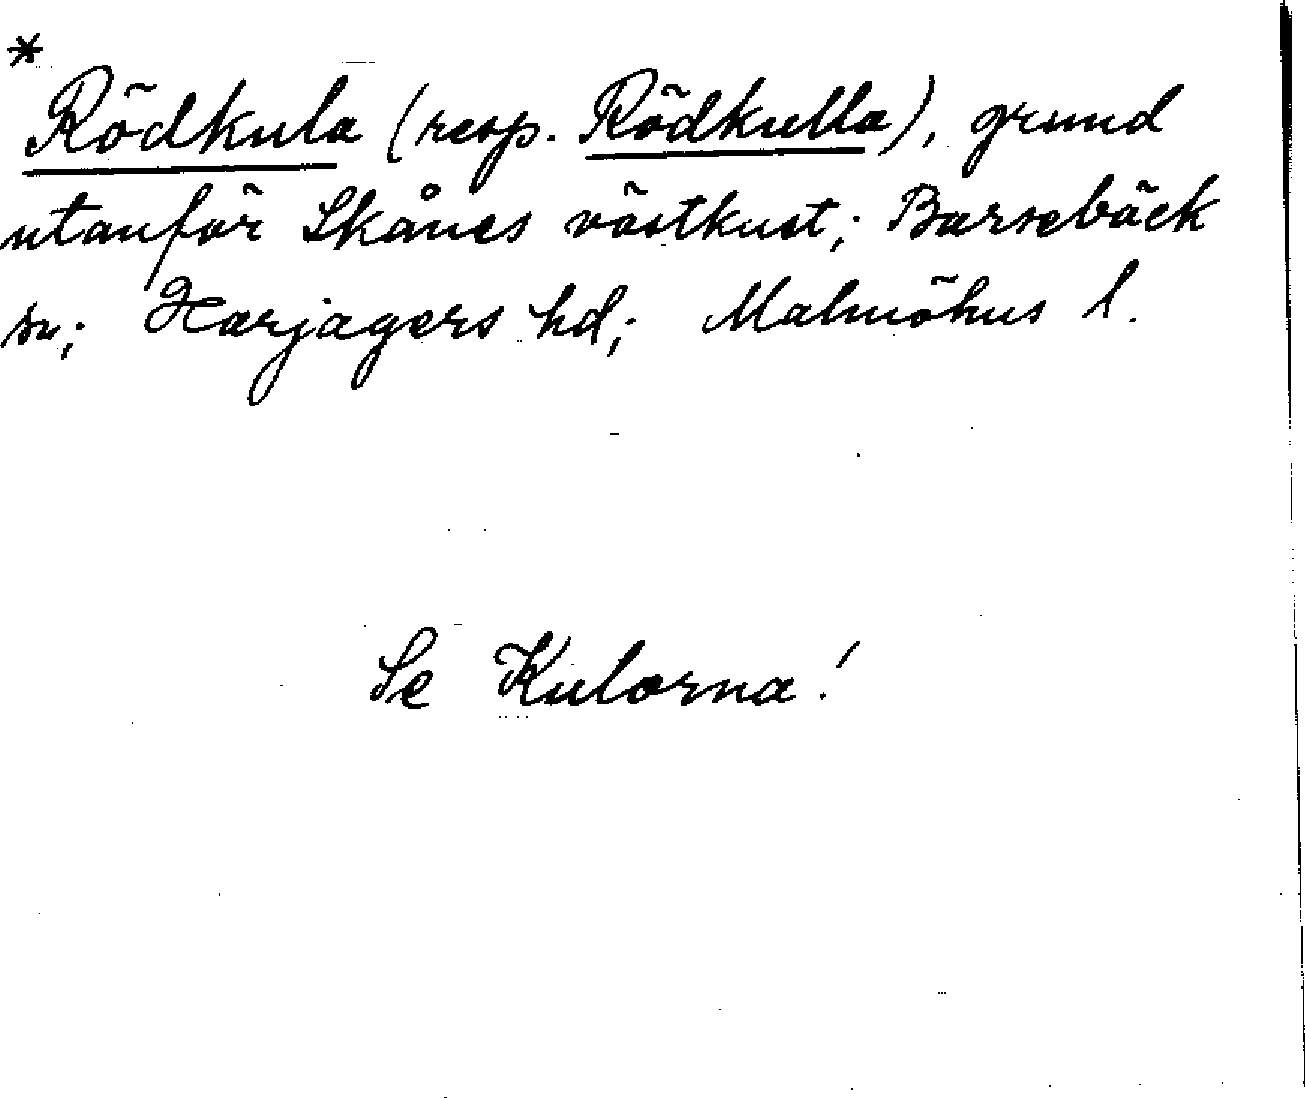 *
Rödkula (resp. Rödkulla), grund
utanför Skånes västkust; Barsebäck
sn; Harjagers hd; Malmöhus l.
Se Kulorna!